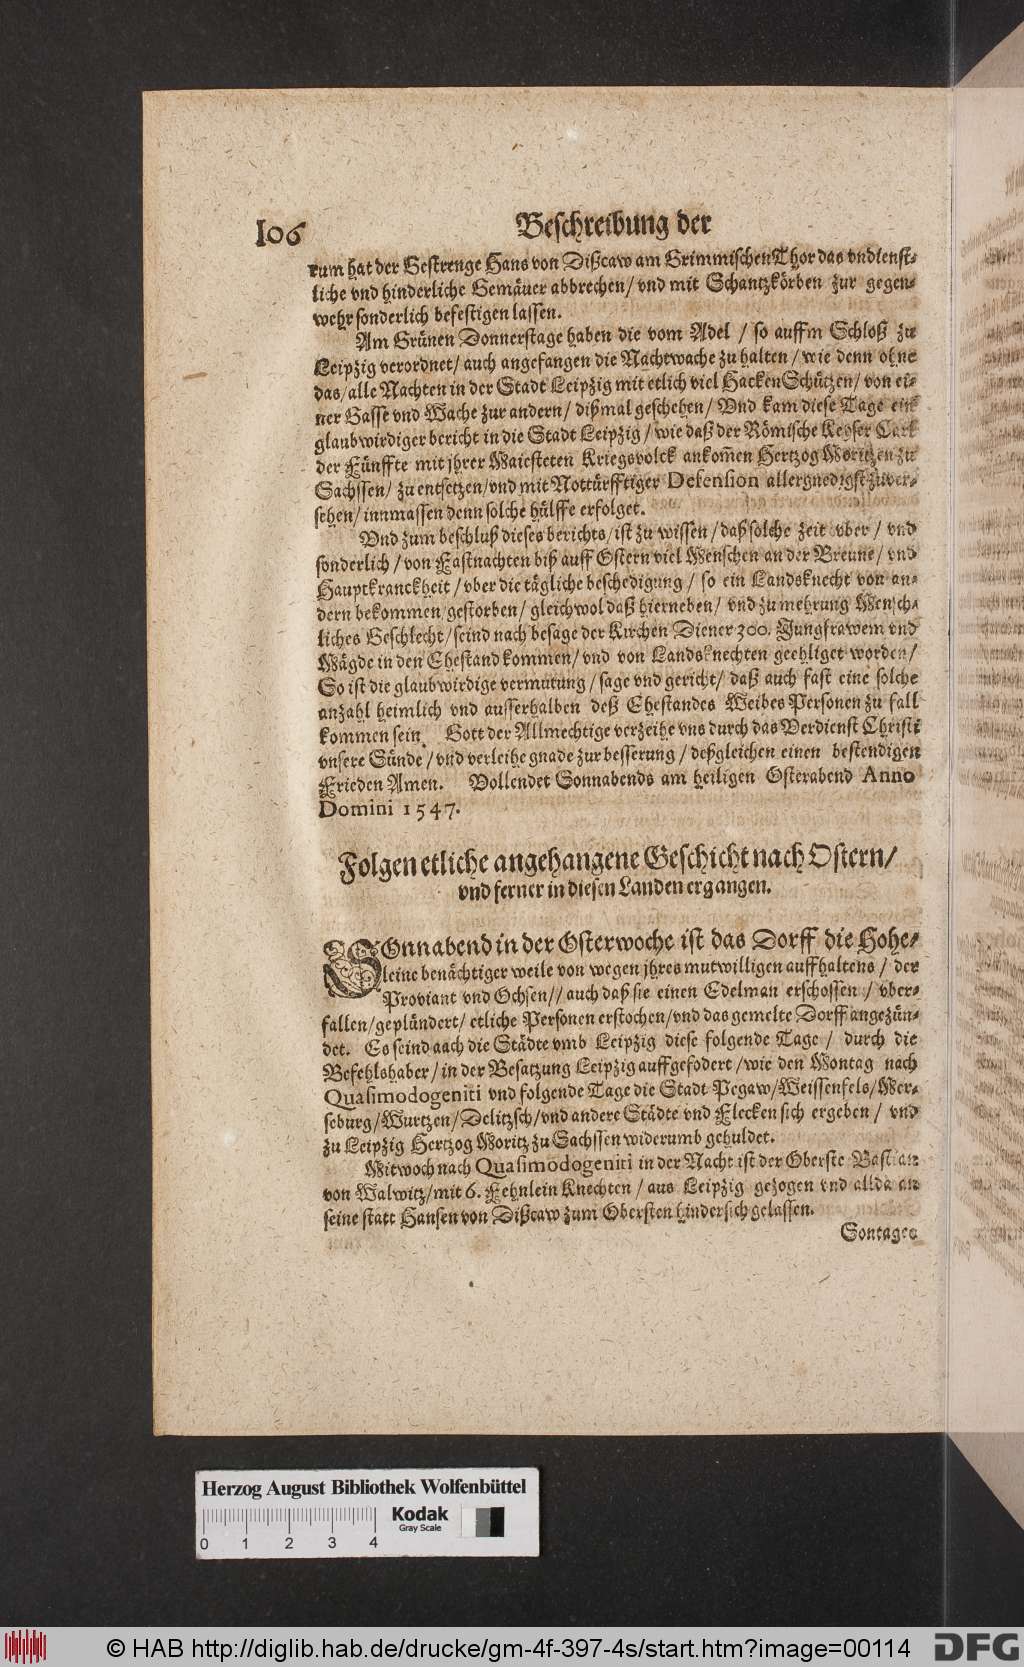 106 Beschreibung der
rum hat der Gestrenge Hans von Dißcaw am Grimmischen Thor das vndienst-
liche vnd hinderliche Gemäuer abbrechen/ vnd mit Schantzkörben zur gegen-
wehr sonderlich befestigen lassen.
Am Grünen Donnerstage haben die vom Adel / so auffm Schloß zu
Leipzig verordnet/ auch angefangen die Nachtwache zu halten/ wie denn ohne
das/alle Nachten in der Stadt Leipzig mit etlich viel HackenSchützen/ von ei-
ner Gasse vnd Wache zur andern/ dißmal geschehen/ Vnd kam diese Tage ein
glaubwirdiger bericht in die Stadt Leipzig/ wie daß der Römische Keyser Carl
der Fünffte mit jhrer Maiesteten Kriegsvolck ankom̃en Hertzog Moritzen zu
Sachssen/ zu entsetzen/vnd mit Nottürfftiger Defension allergnedigst zuver-
sehen/ innmassen denn solche hülffe erfolget.
Vnd zum beschluß dieses berichts/ist zu wissen/ daß solche zeit vber/ vnd
sonderlich/ von Fastnachten biß auff Ostern viel Menschen an der Breune/ vnd
Hauptkranckheit/ vber die tägliche beschedigung/ so ein Landsknecht von an-
dern bekommen/gestorben/ gleichwol daß hierneben/ vnd zu mehrung Mensch-
liches Geschlecht/seind nach besage der Kirchen Diener 300. Jungfrawem vnd
Mägde in den Ehestand kommen/ vnd von Landsknechten geehliget worden/
So ist die glaubwirdige vermutung/ sage vnd gericht/ daß auch fast eine solche
anzahl heimlich vnd ausserhalben deß Ehestandes Weibes Personen zu fall
kommen sein. Gott der Allmechtige verzeihe vns durch das Verdienst Christi
vnsere Sünde/ vnd verleihe gnade zur besserung/ deßgleichen einen bestendigen
Frieden Amen. Vollendet Sonnabends am heiligen Osterabend Anno
Domini 1547.
Folgen etliche angehangene Geschicht nach Ostern/
vnd ferner in diesen Landen ergangen.
SOnnabend in der Osterwoche ist das Dorff die Hohe-
leine benächtiger weile von wegen jhres mutwilligen auffhaltens/ der
Proviant vnd Ochsen// auch daß sie einen Edelman erschossen/ vber-
fallen/geplündert/ etliche Personen erstochen/vnd das gemelte Dorff angezün-
det. Es seind aach die Städte vmb Leipzig diese folgende Tage/ durch die
Befehlshaber/ in der Besatzung Leipzig auffgefodert/wie den Montag nach
Quasimodogeniti vnd folgende Tage die Stadt Pegaw/Weissenfels/Mer-
seburg/Wurtzen/Delitzsch/vnd andere Städte vnd Flecken sich ergeben/ vnd
zu Leipzig Hertzog Moritz zu Sachssen widerumb gehuldet.
Mitwoch nach Quasimodogeniti in der Nacht ist der Oberste Bastian
von Walwitz/mit 6. Fehnlein Knechten/ aus Leipzig gezogen vnd allda an
seine statt Hansen von Dißcaw zum Obersten hindersich gelassen.
Sontages
Herzog August Bibliothek Wolfenbüttel
Kodak
Gray Scale
0 1 2 3 4
© HAB http://diglib.hab.de/drucke/gm-4f-397-4s/start.htm?image=00114
DFG